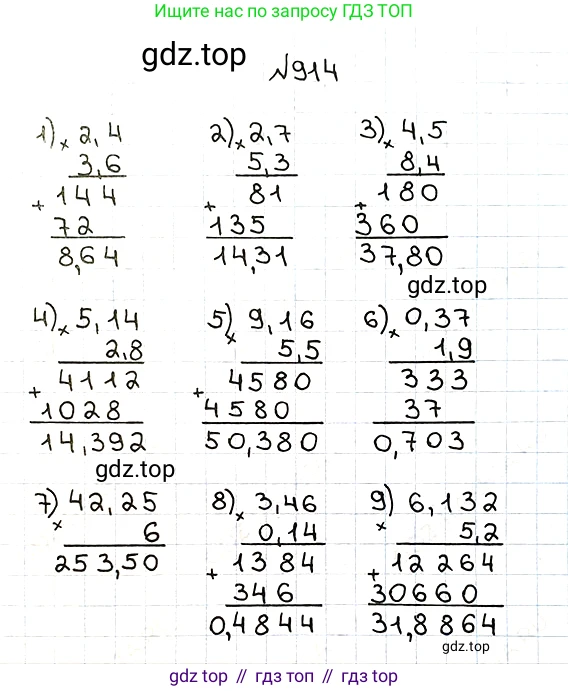 Ищите нас по запросу ГДЗ ТОП
gdz.top
№914
1) × 2,4 2) × 2,7 3) × 4,5
3,6 5,3 8,4
+ 144 + 81 + 180
72 135 360
8,64 14,31 37,80
gdz.top
4) × 5,14 5) × 9,16 6) × 0,37
2,8 5,5 1,9
+ 4112 + 4580 333
1028 4580 37
14,392 50,380 0,703
gdz.top
7) × 42,25 8) × 3,46 9) × 6,132
6 0,14 5,2
253,50 + 1384 + 12264
346 30660
0,4844 31,8864
gdz.top
gdz.top // гдз.топ // гдз топ